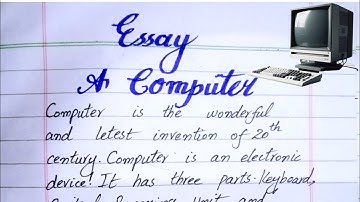 Essay
A Computer
Computer is the wonderful
and letest invention of 20th
century. Computer is an electronic
device! It has three parts: Keyboard,
Unit and